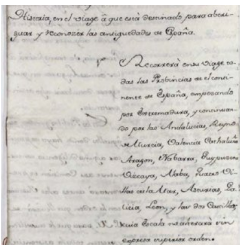 Historia, en el viage à que está destinado, para averi-
guar y reconocer las antiguedades de España.
1º
Recorrerá en su viage to-
das las Provincias en el conti-
nente de España, empezando
por Extremadura, y continuan-
do por las Andalucias, Reyno
de Murcia, Valencia Cathaluña
Aragon, Nabarra, Guipuzcoa
Vizcaya, Alaba, Castilla
la Alta, Asturias, Ga-
licia, Leon, y las dos Castillas
sin
expresa superior orden.